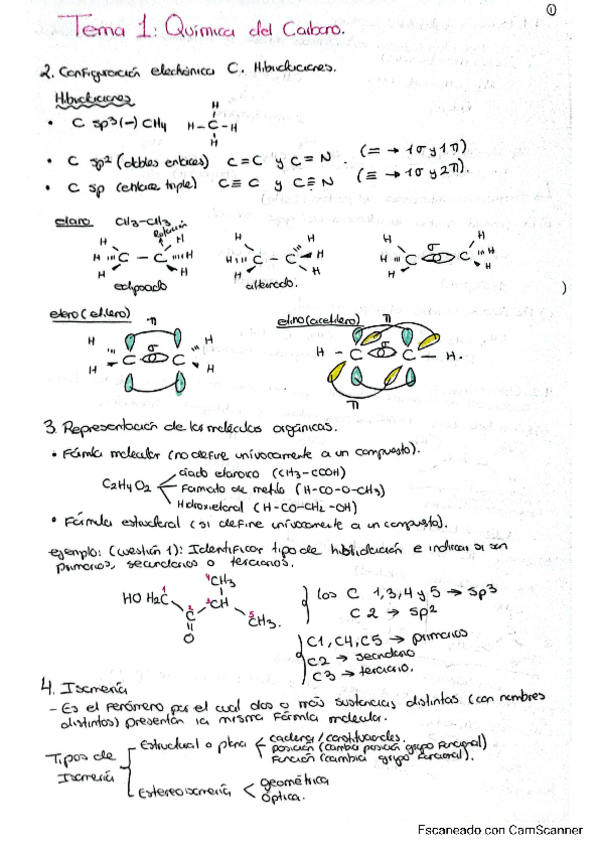 ①
Tema 1: Química del Carbono.
2. Configuración electrónica C. Hibridaciones.
Hibridaciones
• C sp³ (-) CH4
H
H-C-H
H
• C sp² (dobles enlaces) C=C y C=N. (= → 1σ y 1π)
• C sp (enlace triple) C≡C y C≡N (≡ → 1σ y 2π).
etano CH3-CH3
Rotación
H H H C - C H H H
H H H C - C H H H
H H H C σ C H H H
eclipsado
alternado.
eteno (etileno)
π
H H C σ C H H
etino (acetileno)
π
H - C σ C - H.
π
3. Representación de las moléculas orgánicas.
• Fórmula molecular (no define unívocamente a un compuesto).
C2H4O2
ácido etanoico (CH3-COOH)
Formiato de metilo (H-CO-O-CH3)
Hidroxietanal (H-CO-CH2-OH)
• Fórmula estructural (si define unívocamente a un compuesto).
ejemplo: (cuestión 1): Identificar tipo de hibridación e indicar si son
primarios, secundarios o terciarios.
4CH3
HO H2C 1
3CH
2C
5CH3.
O
los C 1,3,4 y 5 → sp3
C 2 → sp2
C1, C4, C5 → primarios
C2 → secundario
C3 → terciario.
4. Isomería
- Es el fenómeno por el cual dos o más sustancias distintas (con nombres
distintos) presentan la misma fórmula molecular.
Tipos de
Isomería
Estructural o plana
cadena / constitucionales.
posición (cambia posición grupo funcional)
Función (cambia grupo funcional).
Estereoisomería
geométrica
óptica.
Escaneado con CamScanner